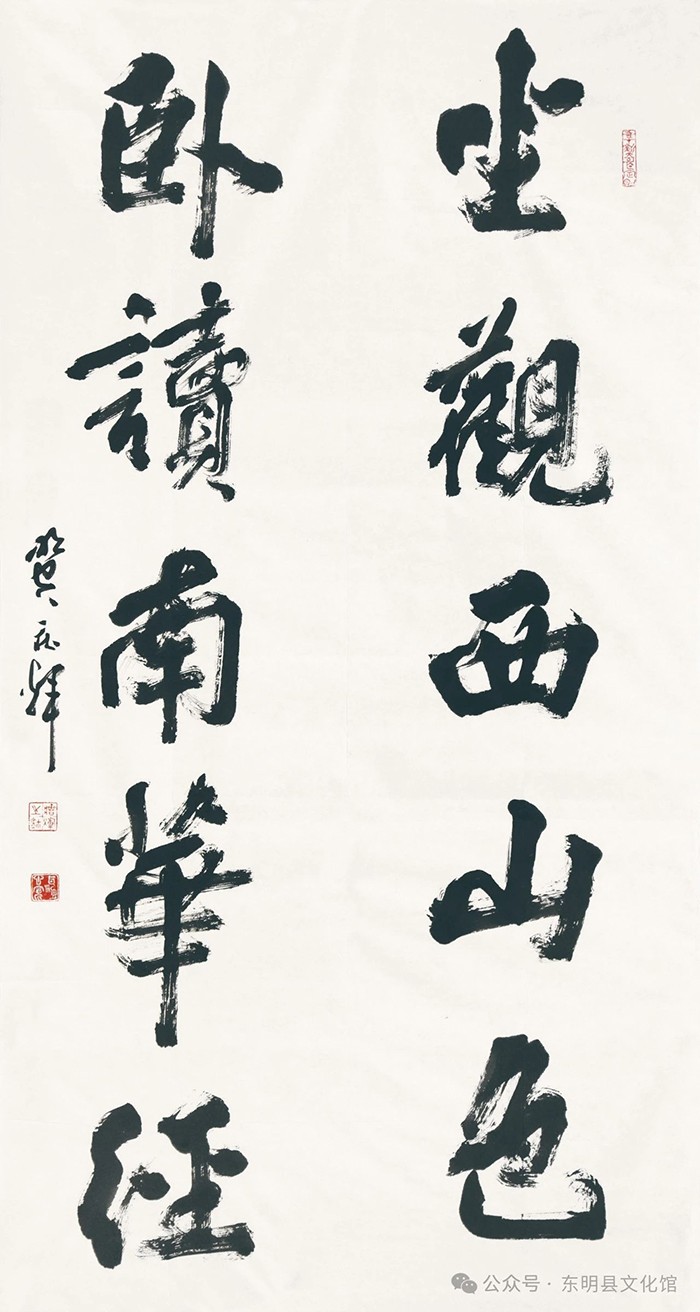 坐觀西山色
卧讀南華經
公众号·东明县文化馆